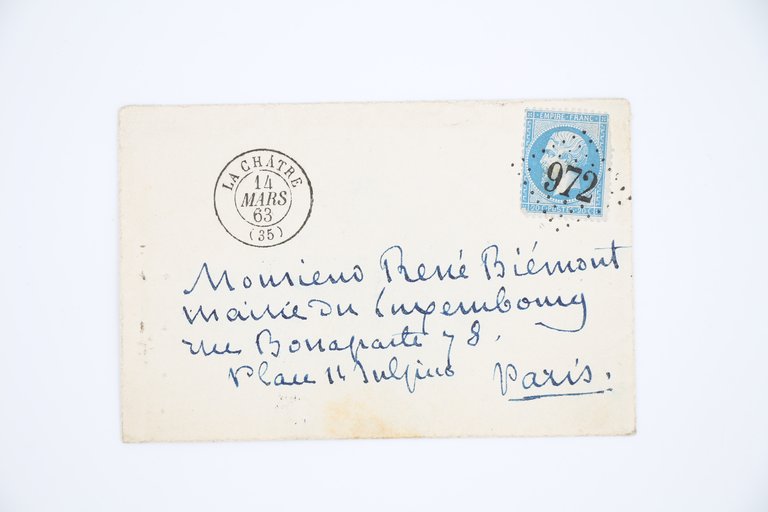 LA CHÂTRE
14
MARS
63
(35)
EMPIRE FRANC
972
20 C POSTES 20 C
Monsieur René Biémont
Mairie du Luxembourg
rue Bonaparte 78.
Place St Sulpice Paris.